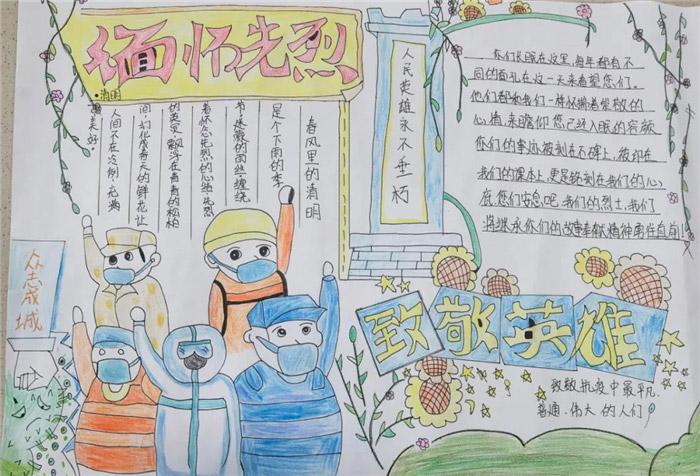 缅怀先烈
·清明
春风里的清明
是个下雨的季
节,迷散的雨丝,缠绕
着怀念先烈的心绪先烈
的英灵,飘浮在青青的松柏
间,幻化成春天的鲜花,让
人间不在冷,充满
着美好
人民英雄永不垂朽
你们长眠在这里,每年都有不
同的面孔在这一天来看望您们。
他们都和我们一样怀揣着崇敬的
心情,来瞻仰您已经入眠的容颜
你们的事迹被刻在石碑上,被印在
我们的课本上,更是铭刻在我们的心
底,您们安息吧,我们的烈士,我们
将继承你们的奉献精神勇往直前!
众志成城
致敬英雄
致敬抗疫中最平凡.
普通、伟大的人们